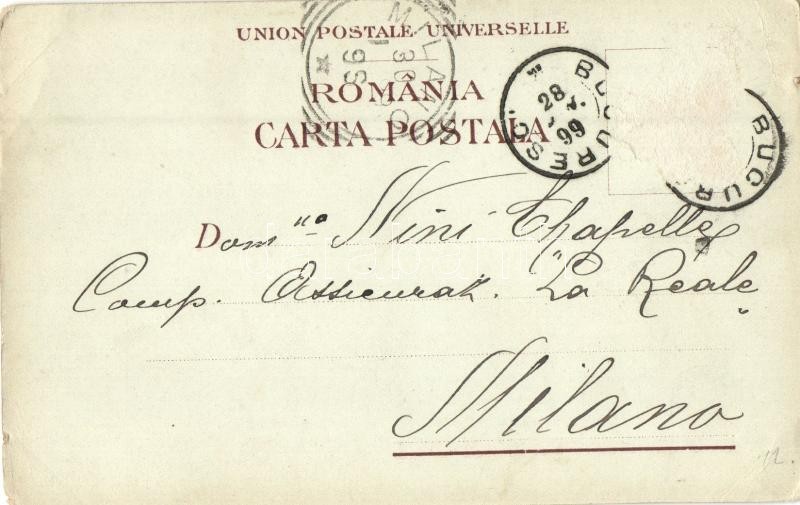 UNION POSTALE UNIVERSELLE
MILANO
30
99
ROMÂNIA
CARTA POSTALA
BUCURESCI
28
99
BUCUR
Dom na Nini Chapelle
Comp. Assicuraz. "La Reale"
Milano
12.